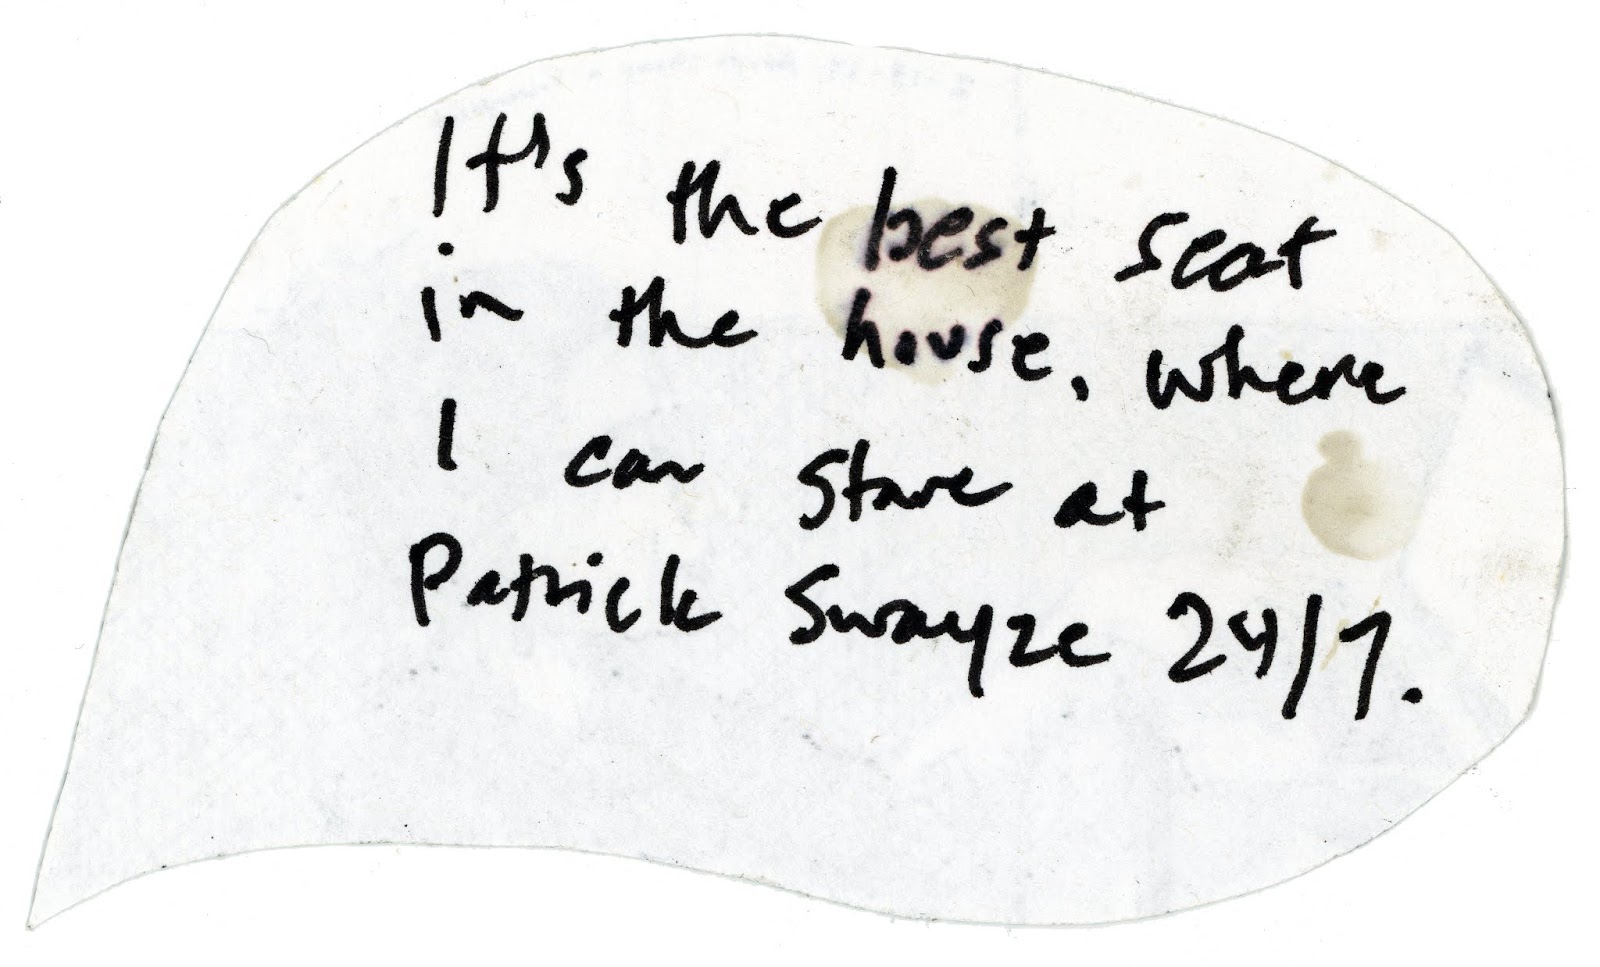 It's the best seat
in the house, where
I can stare at
Patrick Swayze 24/7.